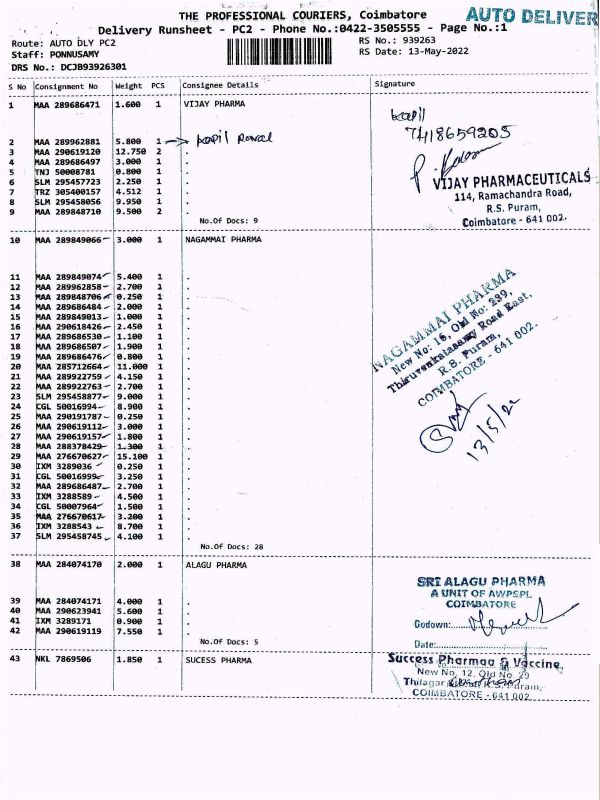 THE PROFESSIONAL COURIERS, Coimbatore
AUTO DELIVER
Delivery Runsheet - PC2 - Phone No.:0422-3505555 - Page No.:1
Route: AUTO DLY PC2
RS No.: 939263
Staff: PONNUSAMY
RS Date: 13-May-2022
DRS No.: DCJB93926301
S No Consignment No Weight PCS Consignee Details Signature
1 MAA 289686471 1.600 1 VIJAY PHARMA
kapil
7418659205
2 MAA 289962881 5.800 1 → kapil
3 MAA 290619120 12.750 2 .
4 MAA 289686497 3.000 1 .
5 TNJ 50008781 0.800 1 .
6 SLM 295457723 2.250 1 .
7 TRZ 305400157 4.512 1 .
8 SLM 295458056 9.950 1 .
9 MAA 289848710 9.500 2 .
No.Of Docs: 9
VIJAY PHARMACEUTICALS
114, Ramachandra Road,
R.S. Puram,
Coimbatore - 641 002.
10 MAA 289849066 3.000 1 NAGAMMAI PHARMA
11 MAA 289849074 5.400 1 .
12 MAA 289962858 2.700 1 .
13 MAA 289848706 0.250 1 .
14 MAA 289686484 2.000 1 .
15 MAA 289849013 1.000 1 .
16 MAA 290618426 2.450 1 .
17 MAA 289686530 1.100 1 .
18 MAA 289686507 1.900 1 .
19 MAA 289686476 0.800 1 .
20 MAA 285712664 11.000 1 .
21 MAA 289922759 4.150 1 .
22 MAA 289922763 2.700 1 .
23 SLM 295458877 9.000 1 .
24 CGL 50016994 8.900 1 .
25 MAA 290191787 0.250 1 .
26 MAA 290619112 3.000 1 .
27 MAA 290619157 1.800 1 .
28 MAA 288378429 1.300 1 .
29 MAA 276670627 15.100 1 .
30 IXM 3289036 0.250 1 .
31 CGL 50016999 3.250 1 .
32 MAA 289686487 2.700 1 .
33 IXM 3288589 4.500 1 .
34 CGL 50007964 1.500 1 .
35 MAA 276670617 3.200 1 .
36 IXM 3288543 8.700 1 .
37 SLM 295458745 4.100 1 .
No.Of Docs: 28
NAGAMMAI PHARMA
New No: 16, Old No: 239,
Thiruvenkatasamy Road East,
R.S. Puram,
COIMBATORE - 641 002.
13/5/22
38 MAA 284074170 2.000 1 ALAGU PHARMA
39 MAA 284074171 4.000 1 .
40 MAA 290623941 5.600 1 .
41 IXM 3289171 0.900 1 .
42 MAA 290619119 7.550 1 .
No.Of Docs: 5
SRI ALAGU PHARMA
A UNIT OF AWPSPL
COIMBATORE
Godown:
Date:
43 NKL 7869506 1.850 1 SUCESS PHARMA
Success Pharmaa & Vaccine,
New No. 12, Old No. 29
Thilagar R.S. Puram,
COIMBATORE - 641 002